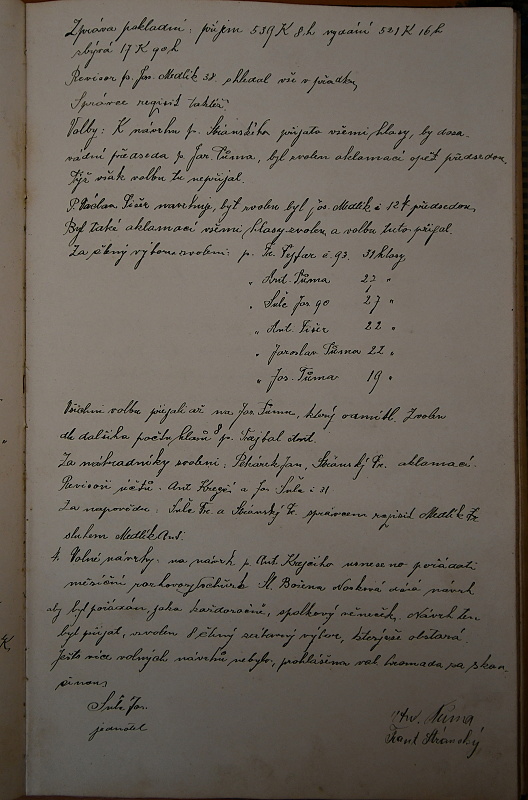 Zpráva pokladní: příjem 539 K 8 h vydání 521 K 16 h
zbývá 17 K 90 h
Revisor p. Jos. Medlík 38. shledal vše v pořádku,
Správce regisit taktéž
Volby: K návrhu p. Stránského přijato všemi hlasy, by dosa-
vádní předseda p. Jar. Tůma, byl zvolen aklamací opět předsedou,
týž však volbu tu nepřijal.
P. Václav Fišer navrhuje, byt zvolen byl Jos. Medlík č 124 předsedou,
Byl také aklamací všemi hlasy zvolen a volbu tuto přijal.
Za členy výboru zvoleni: p. Fr. Vejfar č. 93. 31 hlasy
„ Ant. Tůma 27 „
„ Sulc Jos. 90 27 „
„ Ant. Fišer 22 „
„ Jaroslav Tůma 22 „
„ Jos. Tůma 19 „
Všichni volbu přijali až na Jos. Tůmu, který odmítl. Zvolen
dle dalšího počtu hlasů 8 p. Fajtal Ant.
Za náhradníky zvoleni: Pekárek Jan, Stránský Fr. aklamací.
Revisoři účtů. Ant Krejčí a Jos Sulc č 31
Za napovědu: Sulc Fr. a Stránský Fr. správcem regisit Medlík Fr
sluhem Medlík Ant.
4. Volné návrhy. na návrh p. Ant. Krejčího usneseno pořádati
měsíční Sl. Božena Nosková dává návrh
aby byl pořádán, jako každoročně, spolkový věneček. Návrh ten
byl přijat, zvolen 8 člený výbor, kterýž vše obstará
Ježto více volných návrhů nebylo, prohlášena val. hromada za skon-
čenou,
Sulc Jos.
jednatel
Ant. Tůma
Frant Stránský